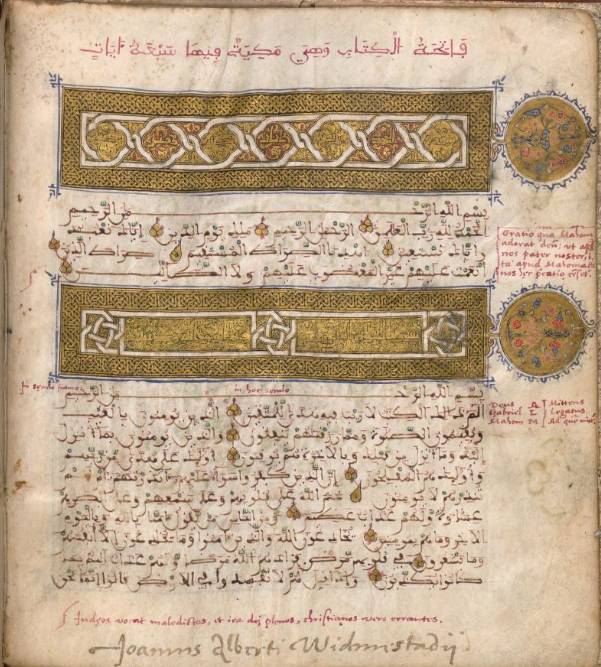 فَاتِحَةُ الْكِتَابِ وَهِيَ مَكِيَّةٌ فِيهَا سَبْعَةُ ءَايَاتٍ
بسم الله الرحمن الرحيم
الحمد لله رب العلمين الرحمن الرحيم ملك يوم الدين إياك نعبد
وإياك نستعين اهدنا الصراط المستقيم صراط الذين
أنعمت عليهم غير المغضوب عليهم ولا الضالين
Oratio qua Mahom
adorat deu; ut apd
nos pater noster, i
ta apud Mahomeda
nos hec oratio est.
بسم الله الرحمن الرحيم
الم ذلك الكتب لا ريب فيه هدى للمتقين الذين يومنون بالغيب
ويقيمون الصلوة ومما رزقنهم ينفقون والذين يومنون بما أنزل
إليك وما أنزل من قبلك وبالاخرة هم يوقنون أولئك على هدى من ربهم
وأولئك هم المفلحون إن الذين كفروا سواء عليهم ءأنذرتهم أم لم
تنذرهم لا يومنون ختم الله على قلوبهم وعلى سمعهم وعلى أبصرهم
غشوة ولهم عذاب عظيم ومن الناس من يقول ءامنا بالله وباليوم
الاخر وما هم بمومنين يخدعون الله والذين ءامنوا وما يخدعون إلا أنفسهم
وما يشعرون في قلوبهم مرض فزادهم الله مرضا ولهم عذاب أليم بما
كانوا يكذبون وإذا قيل لهم لا تفسدوا في الارض قالوا إنما نحن
Deus A Mittens
Gabriel L Legatus
Mahom M Ad quem
Judęos vocat maledictos, et ira dei plenos, christianos vero errantes.
Joannis Alberti Widmestadij